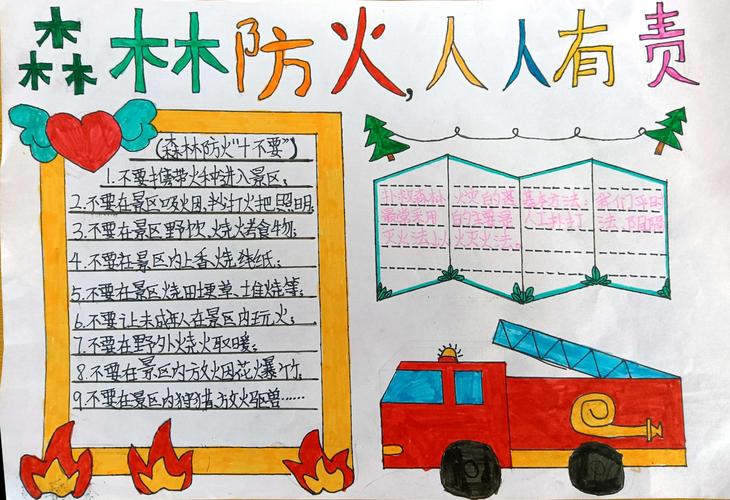 森林防火,人人有责
(森林防火"十不要")
1.不要携带火种进入景区;
2.不要在景区吸烟,执打火把照明;
3.不要在景区野炊、烧烤食物;
4.不要在景区内上香烧钱纸;
5.不要在景区烧田埂草、堆烧等;
6.不要让未成年人在景区内玩火;
7.不要在野外烧火取暖;
8.不要在景区内放火烟花爆竹;
9.不要在景区内狩猎,放火驱兽……
扑救森林火灾的基本方法:我们平时
最常采用的主要是人工扑打法、阻隔
灭火法、以火灭火法。